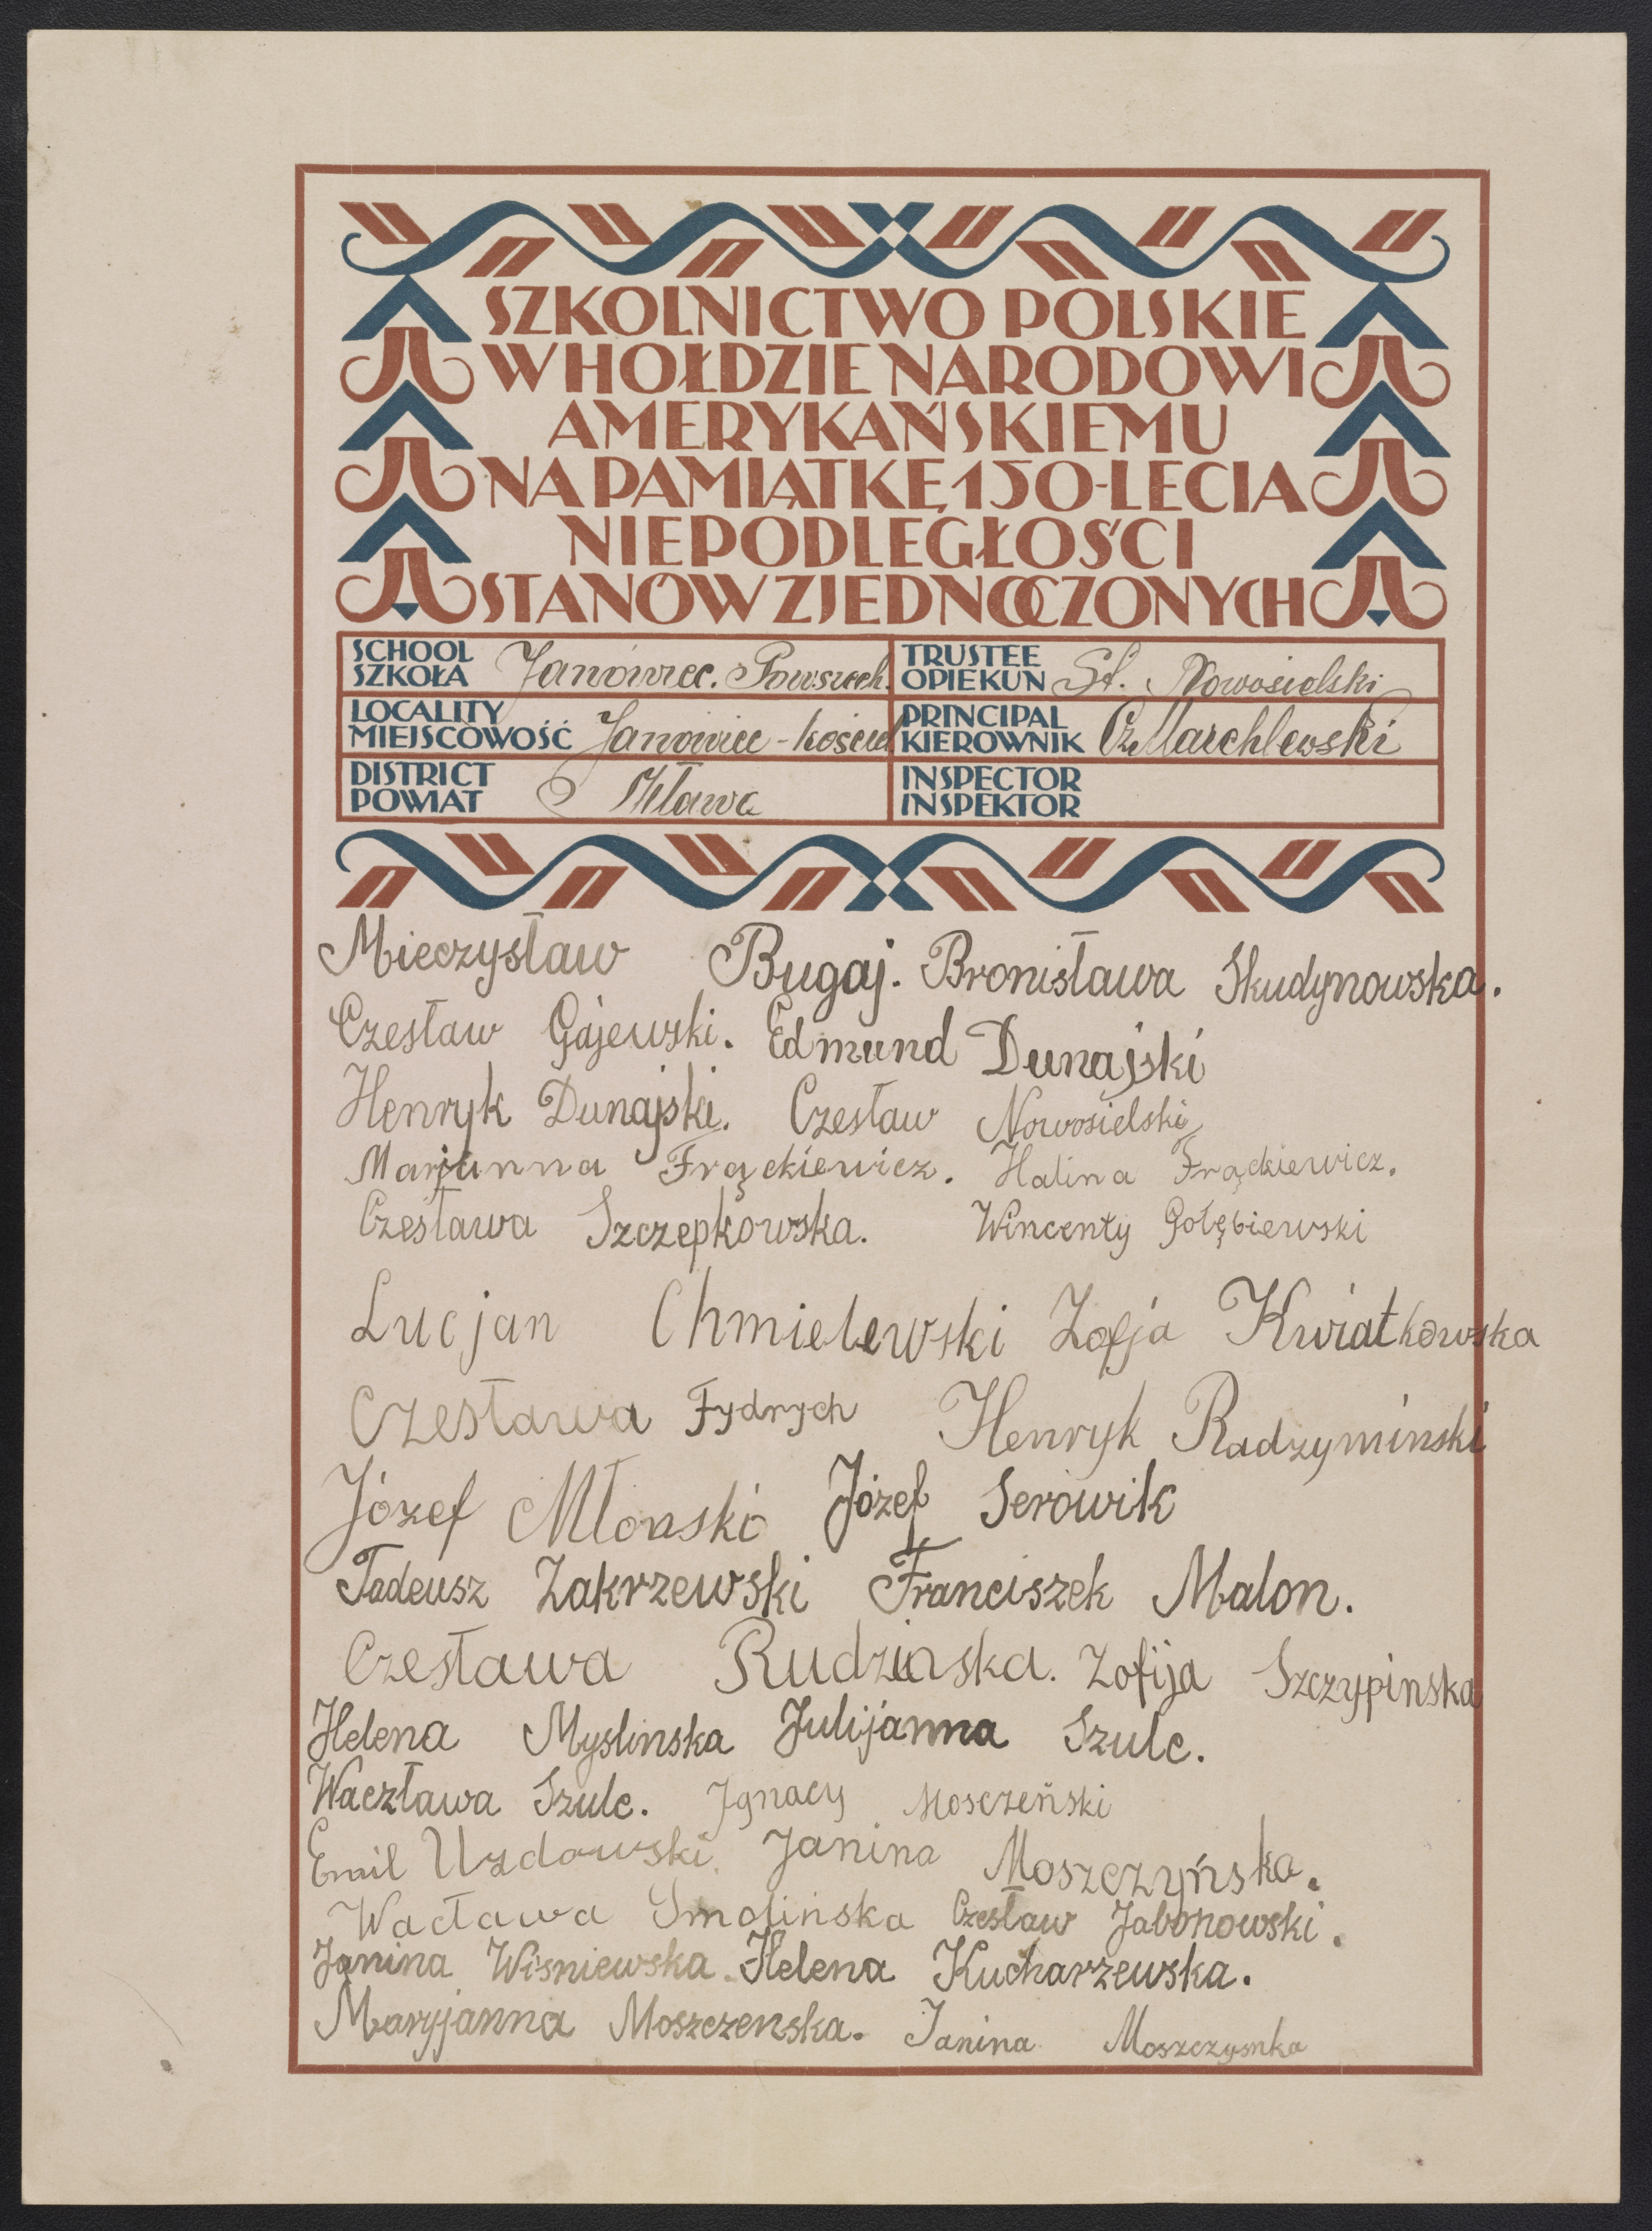 SZKOLNICTWO POLSKIE
W HOŁDZIE NARODOWI
AMERYKAŃSKIEMU
NA PAMIĄTKĘ 150-LECIA
NIEPODLEGŁOŚCI
STANÓW ZJEDNOCZONYCH
SCHOOL
SZKOŁA Janówiec. Powszech.
TRUSTEE
OPIEKUN St. Nowosielski
LOCALITY
MIEJSCOWOŚĆ Janowiec - Kościel
PRINCIPAL
KIEROWNIK Cz. Marchlewski
DISTRICT
POWIAT Mława
INSPECTOR
INSPEKTOR
Mieczysław Bugaj. Bronisława Skudynowska.
Czesław Gajewski. Edmund Dunajski
Henryk Dunajski. Czesław Nowosielski
Marjanna Frąckiewicz. Halina Frąckiewicz.
Czesława Szczepkowska. Wincenty Gołębiewski
Lucjan Chmielewski Zofja Kwiatkowska
Czesława Fydrych Henryk Radzyminski
Józef Młonski Józef Serowik
Tadeusz Zakrzewski Franciszek Malon.
Czesława Rudzinska. Zofija Szczypinska
Helena Myslinska Julijanna Szulc.
Waczława Szulc. Jgnacy Mosczeński
Emil Uzdowski. Janina Moszczyńska.
Wacława Smolińska Czesław Jabonowski.
Janina Wiśniewska. Helena Kucharzewska.
Maryjanna Moszczenska. Janina Moszczysnka